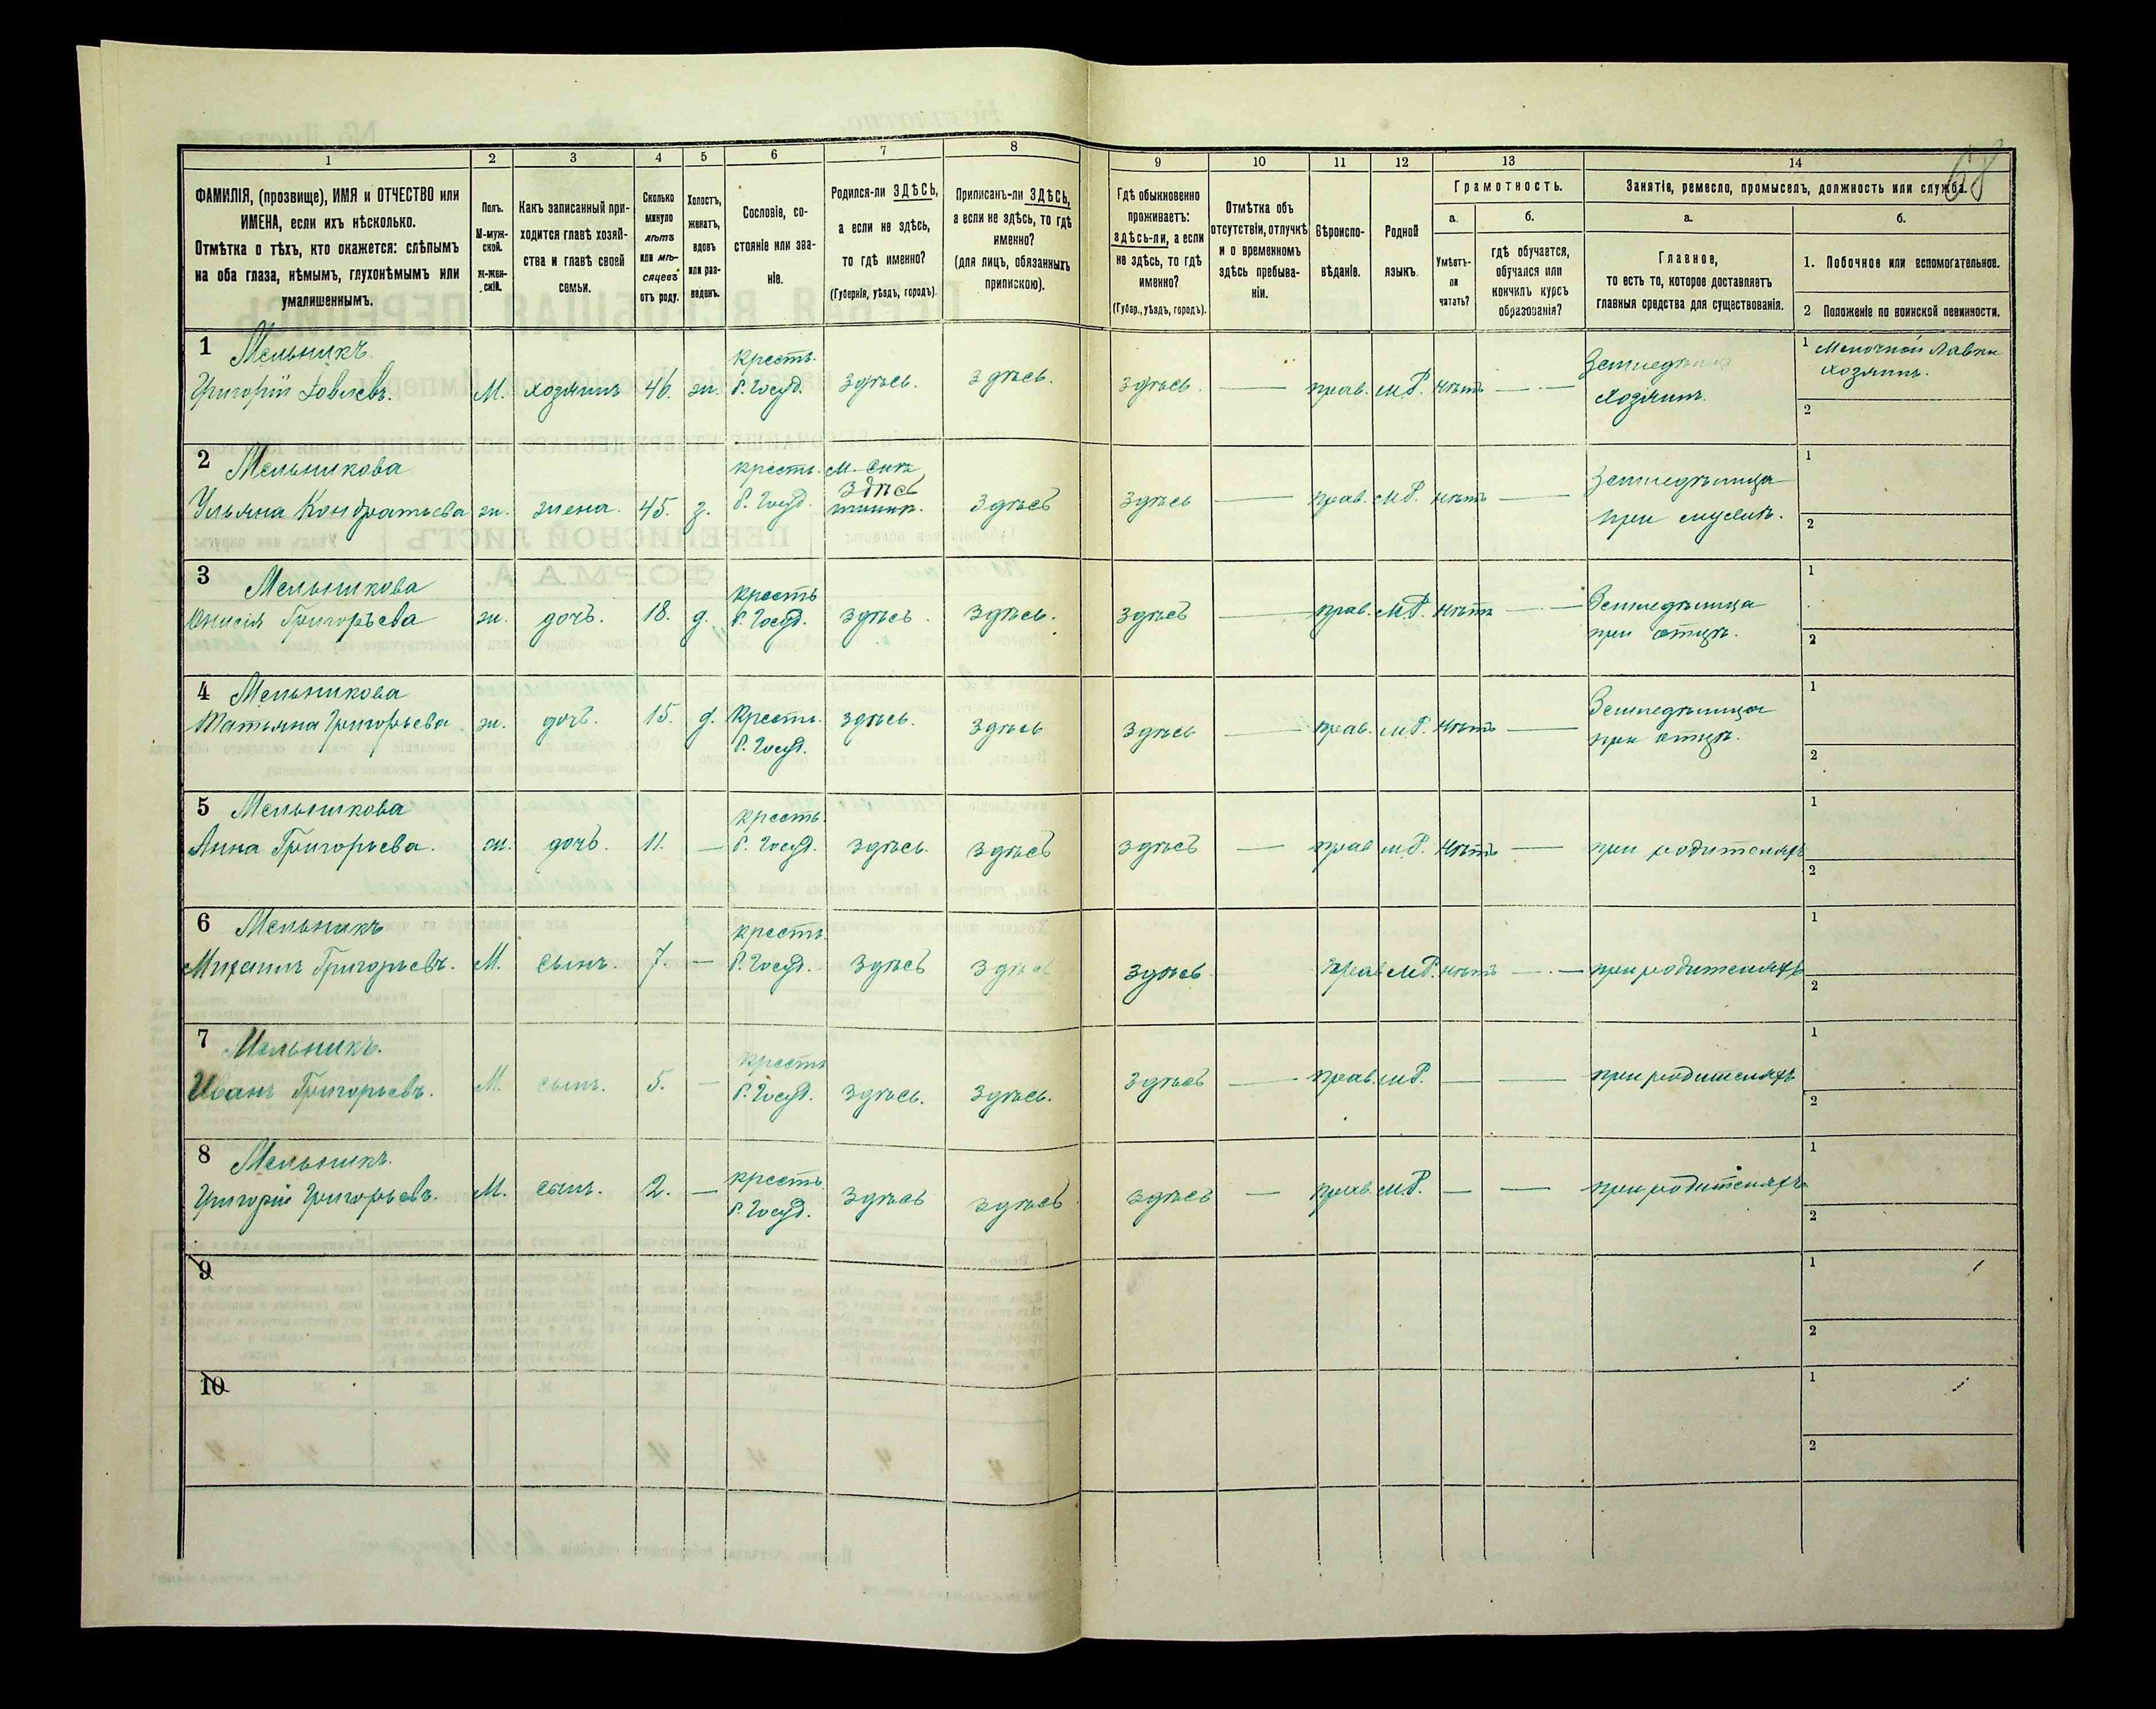 68
1 2 3 4 5 6 7 8 9 10 11 12 13 14
ФАМИЛІЯ, (прозвище), ИМЯ и ОТЧЕСТВО или
ИМЕНА, если ихъ нѣсколько.
Отмѣтка о тѣхъ, кто окажется: слѣпымъ
на оба глаза, нѣмымъ, глухонѣмымъ или
умалишеннымъ.
Полъ.
М-муж-
ской.
ж-жен-
скій.
Какъ записанный при-
ходится главѣ хозяй-
ства и главѣ своей
семьи.
Сколько
минуло
лѣтъ
или мѣ-
сяцевъ
отъ роду.
Холостъ,
женатъ,
вдовъ
или раз-
веденъ.
Сословіе, со-
стояніе или зва-
ніе.
Родился-ли ЗДѢСЬ,
а если не здѣсь,
то гдѣ именно?
(Губернія, уѣздъ, городъ).
Приписанъ-ли ЗДѢСЬ,
а если не здѣсь, то гдѣ
именно?
(для лицъ, обязанныхъ
припискою).
Гдѣ обыкновенно
проживаетъ:
здѣсь-ли, а если
не здѣсь, то гдѣ
именно?
(Губер., уѣздъ, городъ).
Отмѣтка объ
отсутствіи, отлучкѣ
и о временномъ
здѣсь пребыва-
ніи.
Вѣроиспо-
вѣданіе.
Родной
языкъ.
Грамотность.
а.
Умѣетъ-
ли
читать?
б.
гдѣ обучается,
обучался или
кончилъ курсъ
образованія?
Занятіе, ремесло, промыселъ, должность или служба.
а.
Главное,
то есть то, которое доставляетъ
главныя средства для существованія.
б.
1. Побочное или вспомогательное.
2 Положеніе по воинской повинности.
1 Мельникъ крестъ. Земледѣлецъ 1 Мелочной лавки
Григорій М. хозяинъ 46. ж. б. Госуд. здѣсь. здѣсь. здѣсь. — прав. М.Р. нѣтъ — хозяинъ. хозяинъ.
2
2 Мельникова крестъ. Земледѣлица 1
здѣсь
Ульяна Кондратьева ж. жена. 45. з. б. Госуд. здѣсь здѣсь — прав. М.Р. нѣтъ — при мужѣ. 2
3 Мельникова крестъ Земледѣлица 1
Григорьева ж. дочь. 18. д. б. Госуд. здѣсь. здѣсь. здѣсь — прав. М.Р. нѣтъ — при отцѣ. 2
4 Мельникова Земледѣлица 1
Татьяна Григорьева ж. дочь. 15. д. Крестъ. здѣсь. здѣсь здѣсь — прав. М.Р. нѣтъ — при отцѣ.
б. Госуд. 2
5 Мельникова крестъ. 1
Анна Григорьева. ж. дочь. 11. — б. Госуд. здѣсь. здѣсь здѣсь — прав М.Р. нѣтъ — при родителяхъ 2
6 Мельникъ крестъ. 1
Михаилъ Григорьевъ. М. сынъ. 7. — б. Госуд. здѣсь здѣсь здѣсь прав М.Р. нѣтъ — при родителяхъ 2
7 Мельникъ. крестъ 1
Иванъ Григорьевъ. М. сынъ. 5. — б. Госуд. здѣсь. здѣсь. здѣсь — прав. М.Р. — — при родителяхъ 2
8 Мельникъ. крестъ. 1
Григорій Григорьевъ. М. сынъ. 2. — б. Госуд. здѣсь здѣсь здѣсь — прав. М.Р. — — при родителяхъ 2
9 1
2
10 1
2